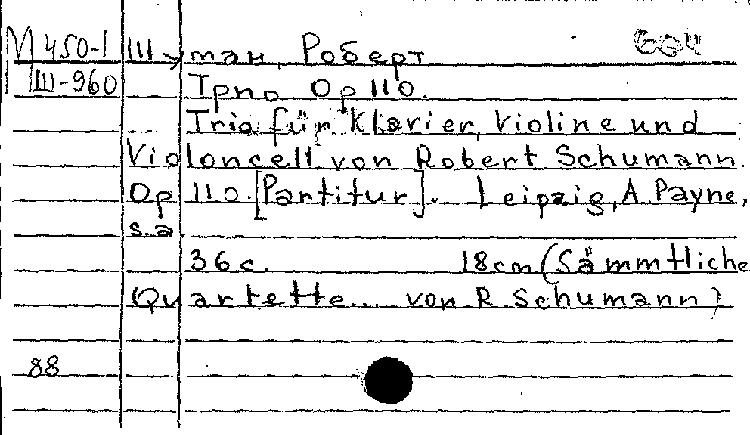 М 450-1 Шуман, Роберт
Ш-960 Трио Ор 110.
Trio für Klavier, Violine und
Violoncell von Robert Schumann.
Op 110. [Partitur]. Leipzig, A Payne,
s.a.
36 с. 18 cm (Sämmtliche
Quartette... von R. Schumann)
88